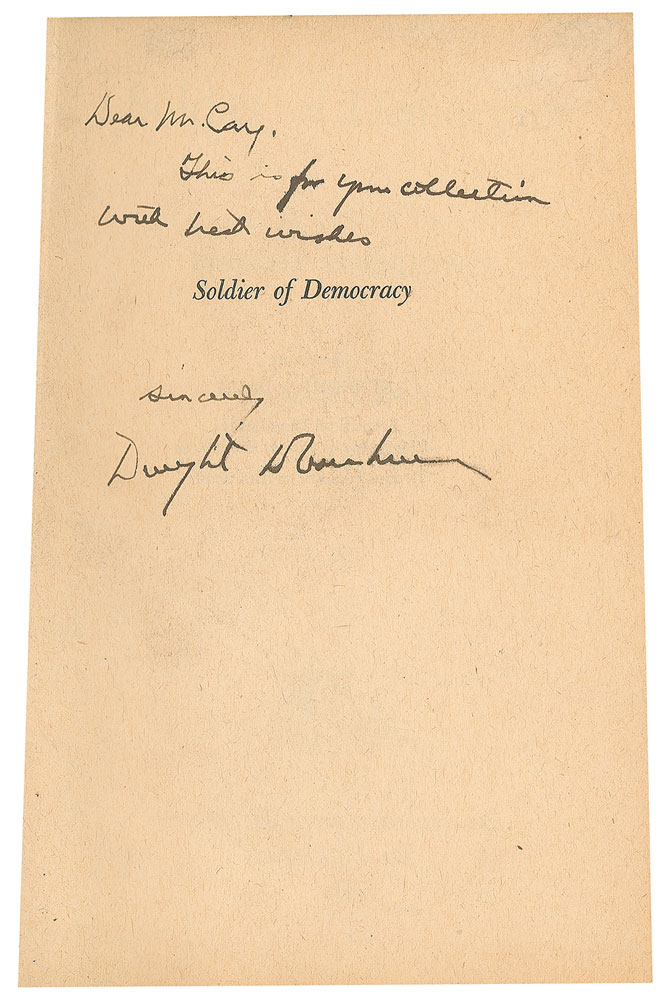 Dear Mr. Cary.
This is for your collection
with best wishes
Soldier of Democracy
Sincerely
Dwight D Eisenhower